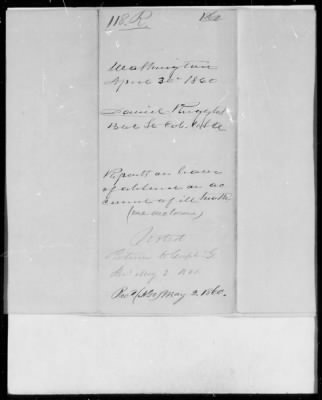 118 R
Washington
April 30 1860
Daniel Ruggles
Bvt Lt Col. U.S.A
Reports on leave
of absence on ac
count of ill health
(one enclosure)
Noted
May 2 1860
Rec'd (AGO) May 2. 1860.